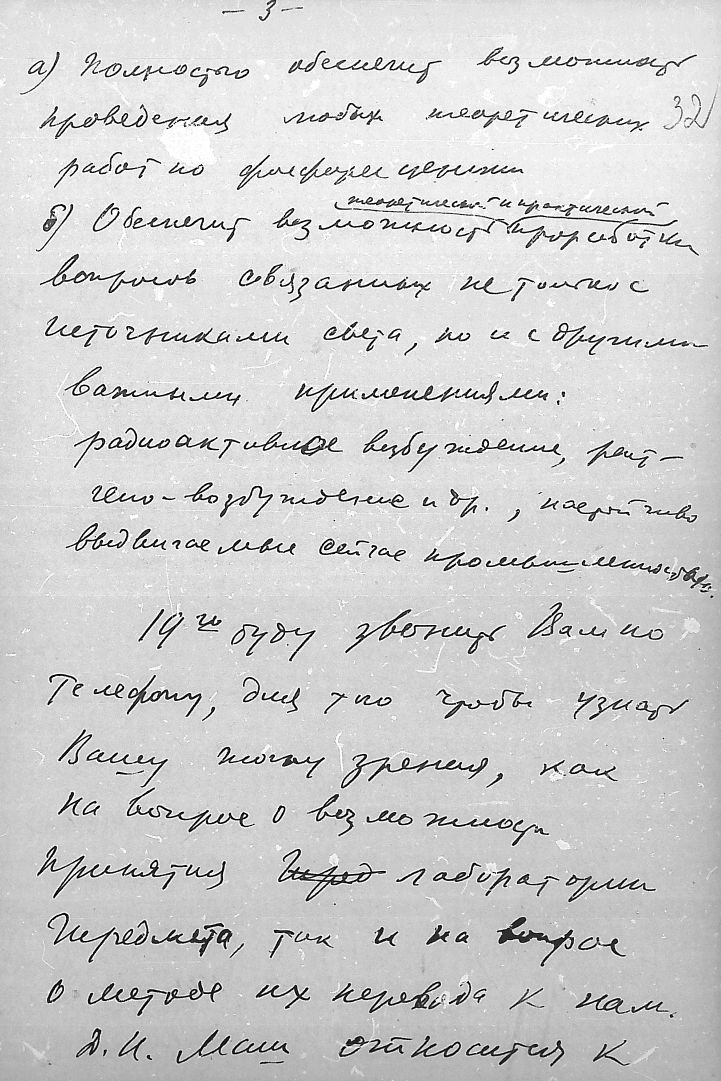 - 3 -
а) Полностью обеспечит возможность
проведения любых теоретических 32
работ по фосфоресценции
теоретической и практической
б) Обеспечит возможность проработки
вопросов связанных не только с
источниками света, но и с другими
важными применениями:
радиоактивное возбуждение, рент-
гено-возбуждение и др., настойчиво
выдвигаемые сейчас промышленностью.
19го буду звонить Вам по
телефону, для того чтобы узнать
Вашу точку зрения, как
на вопрос о возможности
принятия лаборатории
Передмета, так и на вопрос
о методе их перевода к нам.
Д. И. Маш относится к